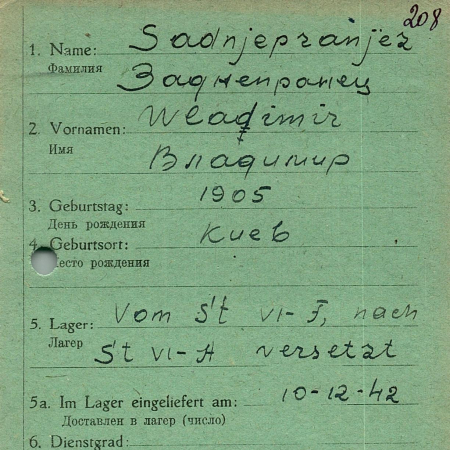 208
1. Name: Sadnjepranjez
Фамилия Заднепранец
2. Vornamen: Wladimir
Имя Владимир
3. Geburtstag: 1905
День рождения
4. Geburtsort: Киев
место рождения
5. Lager: Vom St VI-F, nach
Лагер St VI-A versetzt
5a. Im Lager eingeliefert am: 10-12-42
Доставлен в лагер (число)
6. Dienstgrad: